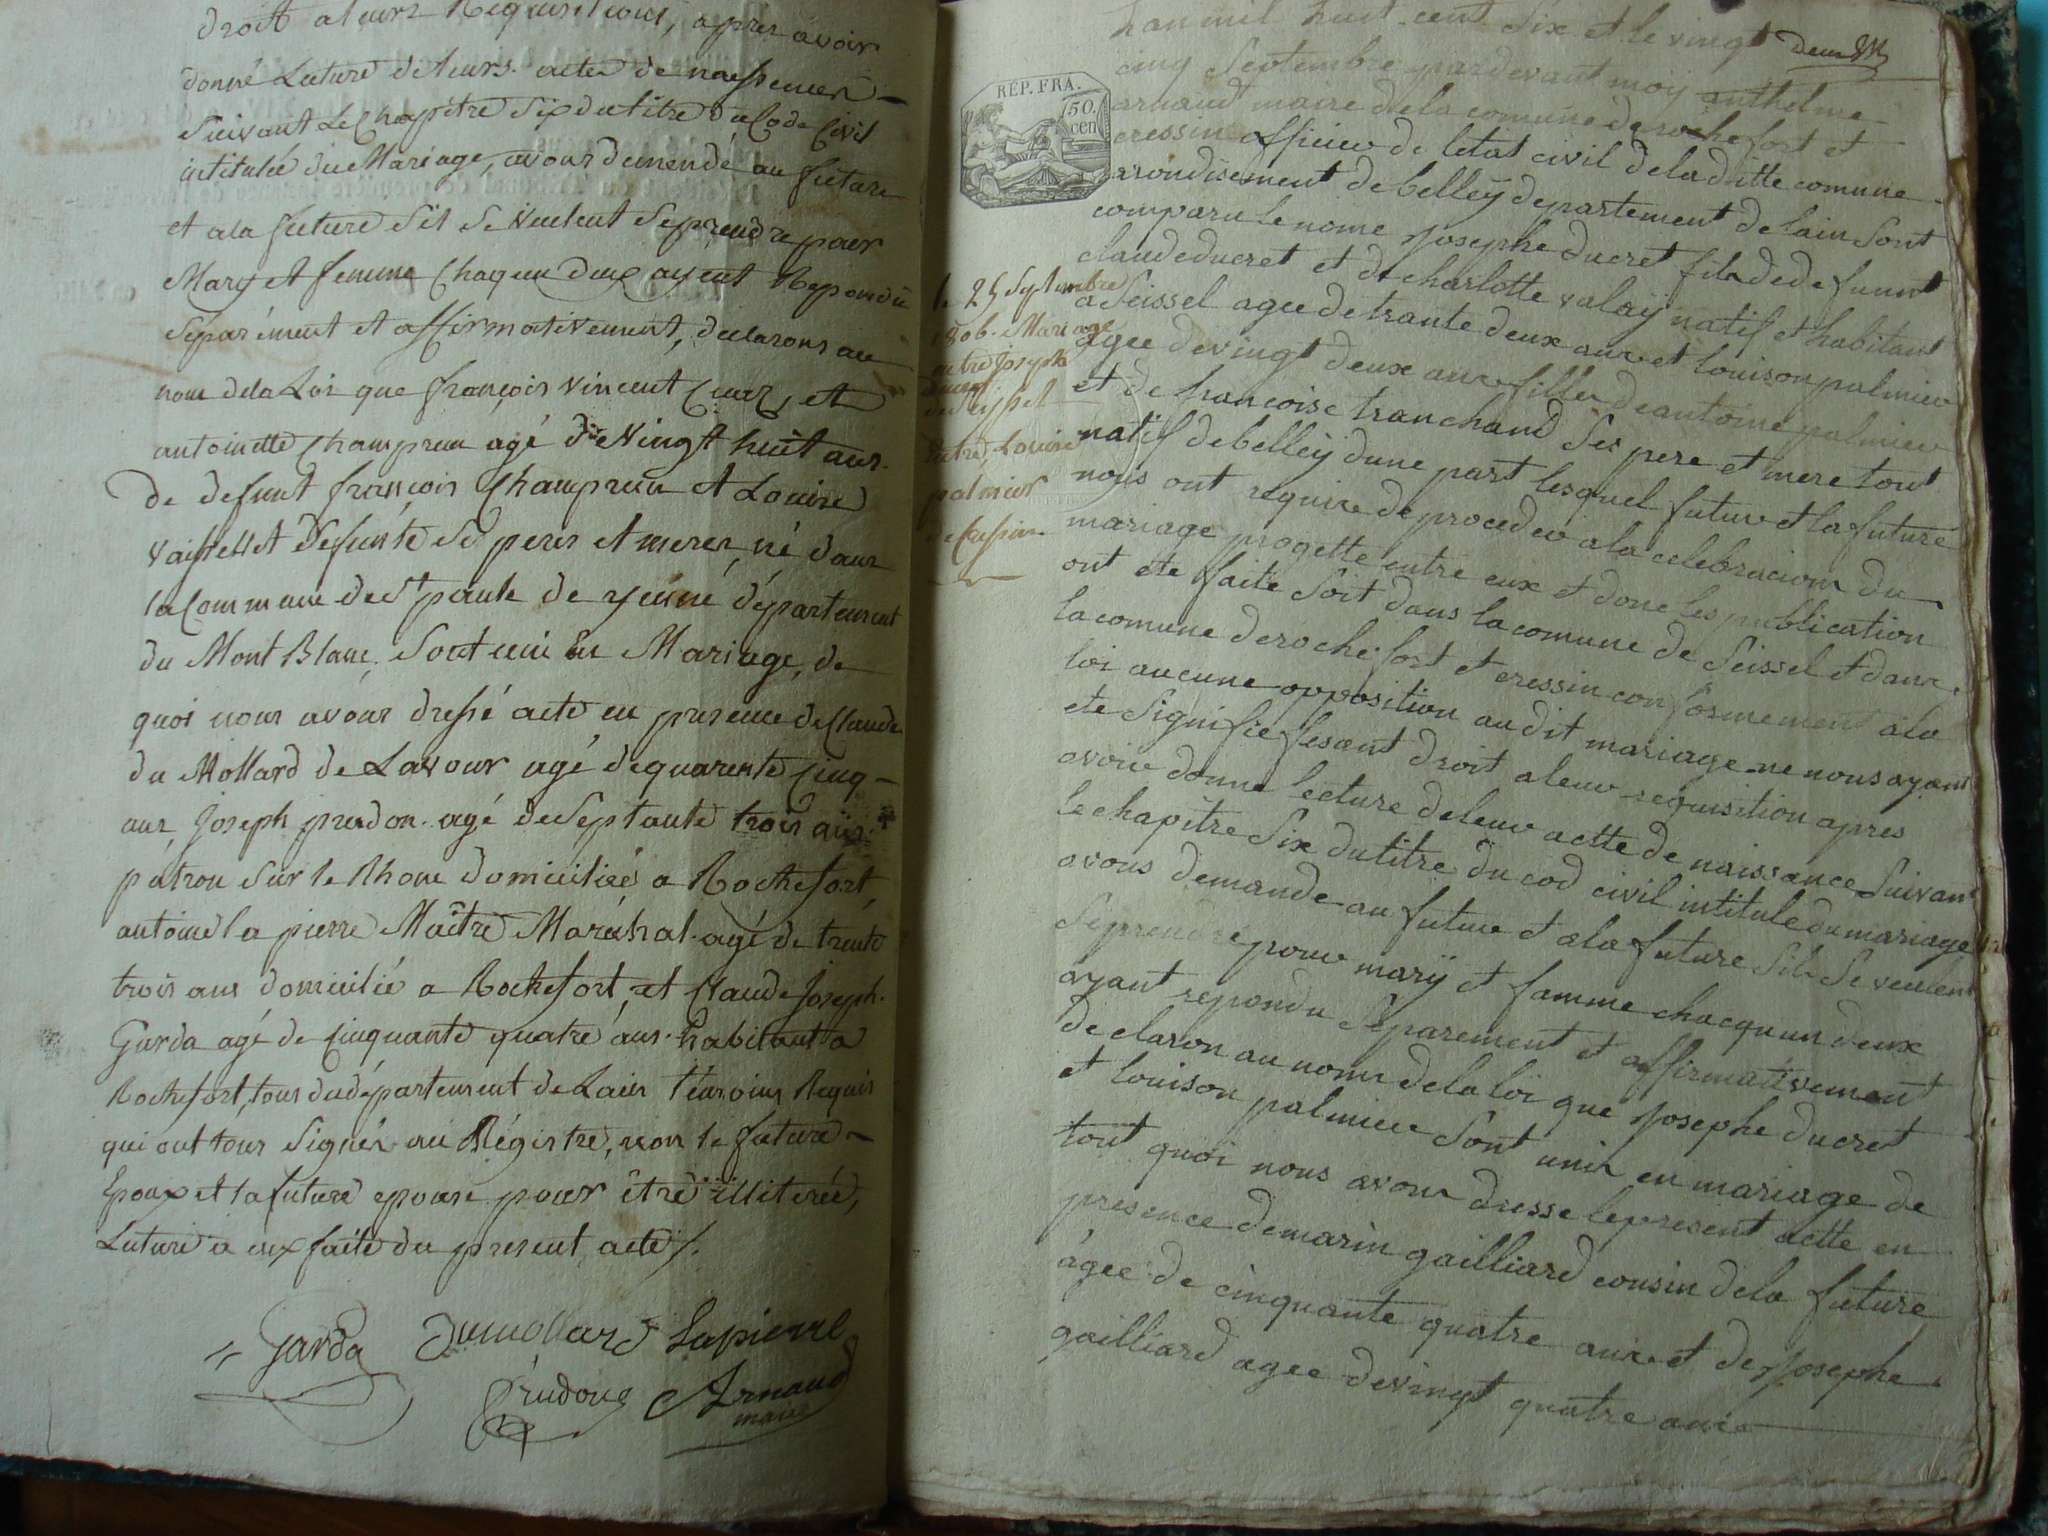 droit a leurs Requisitions, apres avoir
donné Lature de leurs actes de naissences
Suivant Le Chapitre Six du titre du Code Civil
intitulée du Mariage, avons demendé au future
et a la future S'il Se veulent Se prendre pour
Mary et femme Chaqun deux ayent Repondu
Séparément et affirmativement, declarons au
nom de la Loi que françois vincent et
antoinette Champrun agé de Vingt huit ans
de defunt françois Champrun et Louise
defunte Se peres et meres, né dans
la Commune de St paule de yenné département
du Mont Blanc, Sont uni En Mariage, de
quoi nous avons dressé acte en presence de Claude
du Mollard de Lavour agé de quarente Cinq
ans, Joseph prudon agé de Septante trois ans
patron Sur le Rhone domiciliés a Rochefort,
antoine la pierre Maître Maréchal agé de trente
trois ans domicilié a Rochefort, et Claude Joseph
Garda agé de Cinquante quatre ans habitant a
Rochefort, tous du département de Lain témoins Requis
qui ont tous Signés au Régistre, non le future
Epoux et la future epouse pour être illiterée,
Lature a eux faite du present acte /.
Garda dumollard Lapierre
Prudon Arnaud
maire
lan mil huit cent Six et le vingt
cinq Septembre pardevant moy anthelme
arnaud maire de la comune de rochefort et
cressin officier de letat civil de laditte comune
arondisement de belleÿ departement de lain Sont
comparu le nome Josephe ducret fils de defunt
claude ducret et de charlotte valaÿ natif et habitant
a Seissel agee de trante deux ans et louison palmier
agee de vingt deux ans fille de antoine palmier
et de francoise tranchand Ses pere et mere tout
natif de belleÿ dune part lesquel future et la future
nous ont require de proceder a la celebracion du
mariage progette entre eux et donc les publication
ont ete faite Soit dans la comune de Seissel et dans
la comune de rochefort et cressin conformement a la
loi aucune opposition audit mariage ne nous ayant
ete Signifie fesant droit a leur requisition apres
avoir donne lecture de leur actte de naissance Suivant
le chapitre Six du titre du cod civil intitule du mariage
avons demande au future et a la future Sils Se veulent
Se prendre pour marÿ et famme chacqun deux
ayant repondu Separement et affirmativement
declaron au nom de la loi que Josephe ducret
et louison palmier Sont unis en mariage de
tout quoi nous avons dresse le present actte en
presence de marin gailliard cousin de la future
agee de cinquante quatre ans et de Josephe
gailliard agee de vingt quatre ans
REP. FRA.
50.
cen
le 25 Septembre
1806. Mariage
entre Joseph
ducret
de Seyssel
Louise
palmier
de Cressin